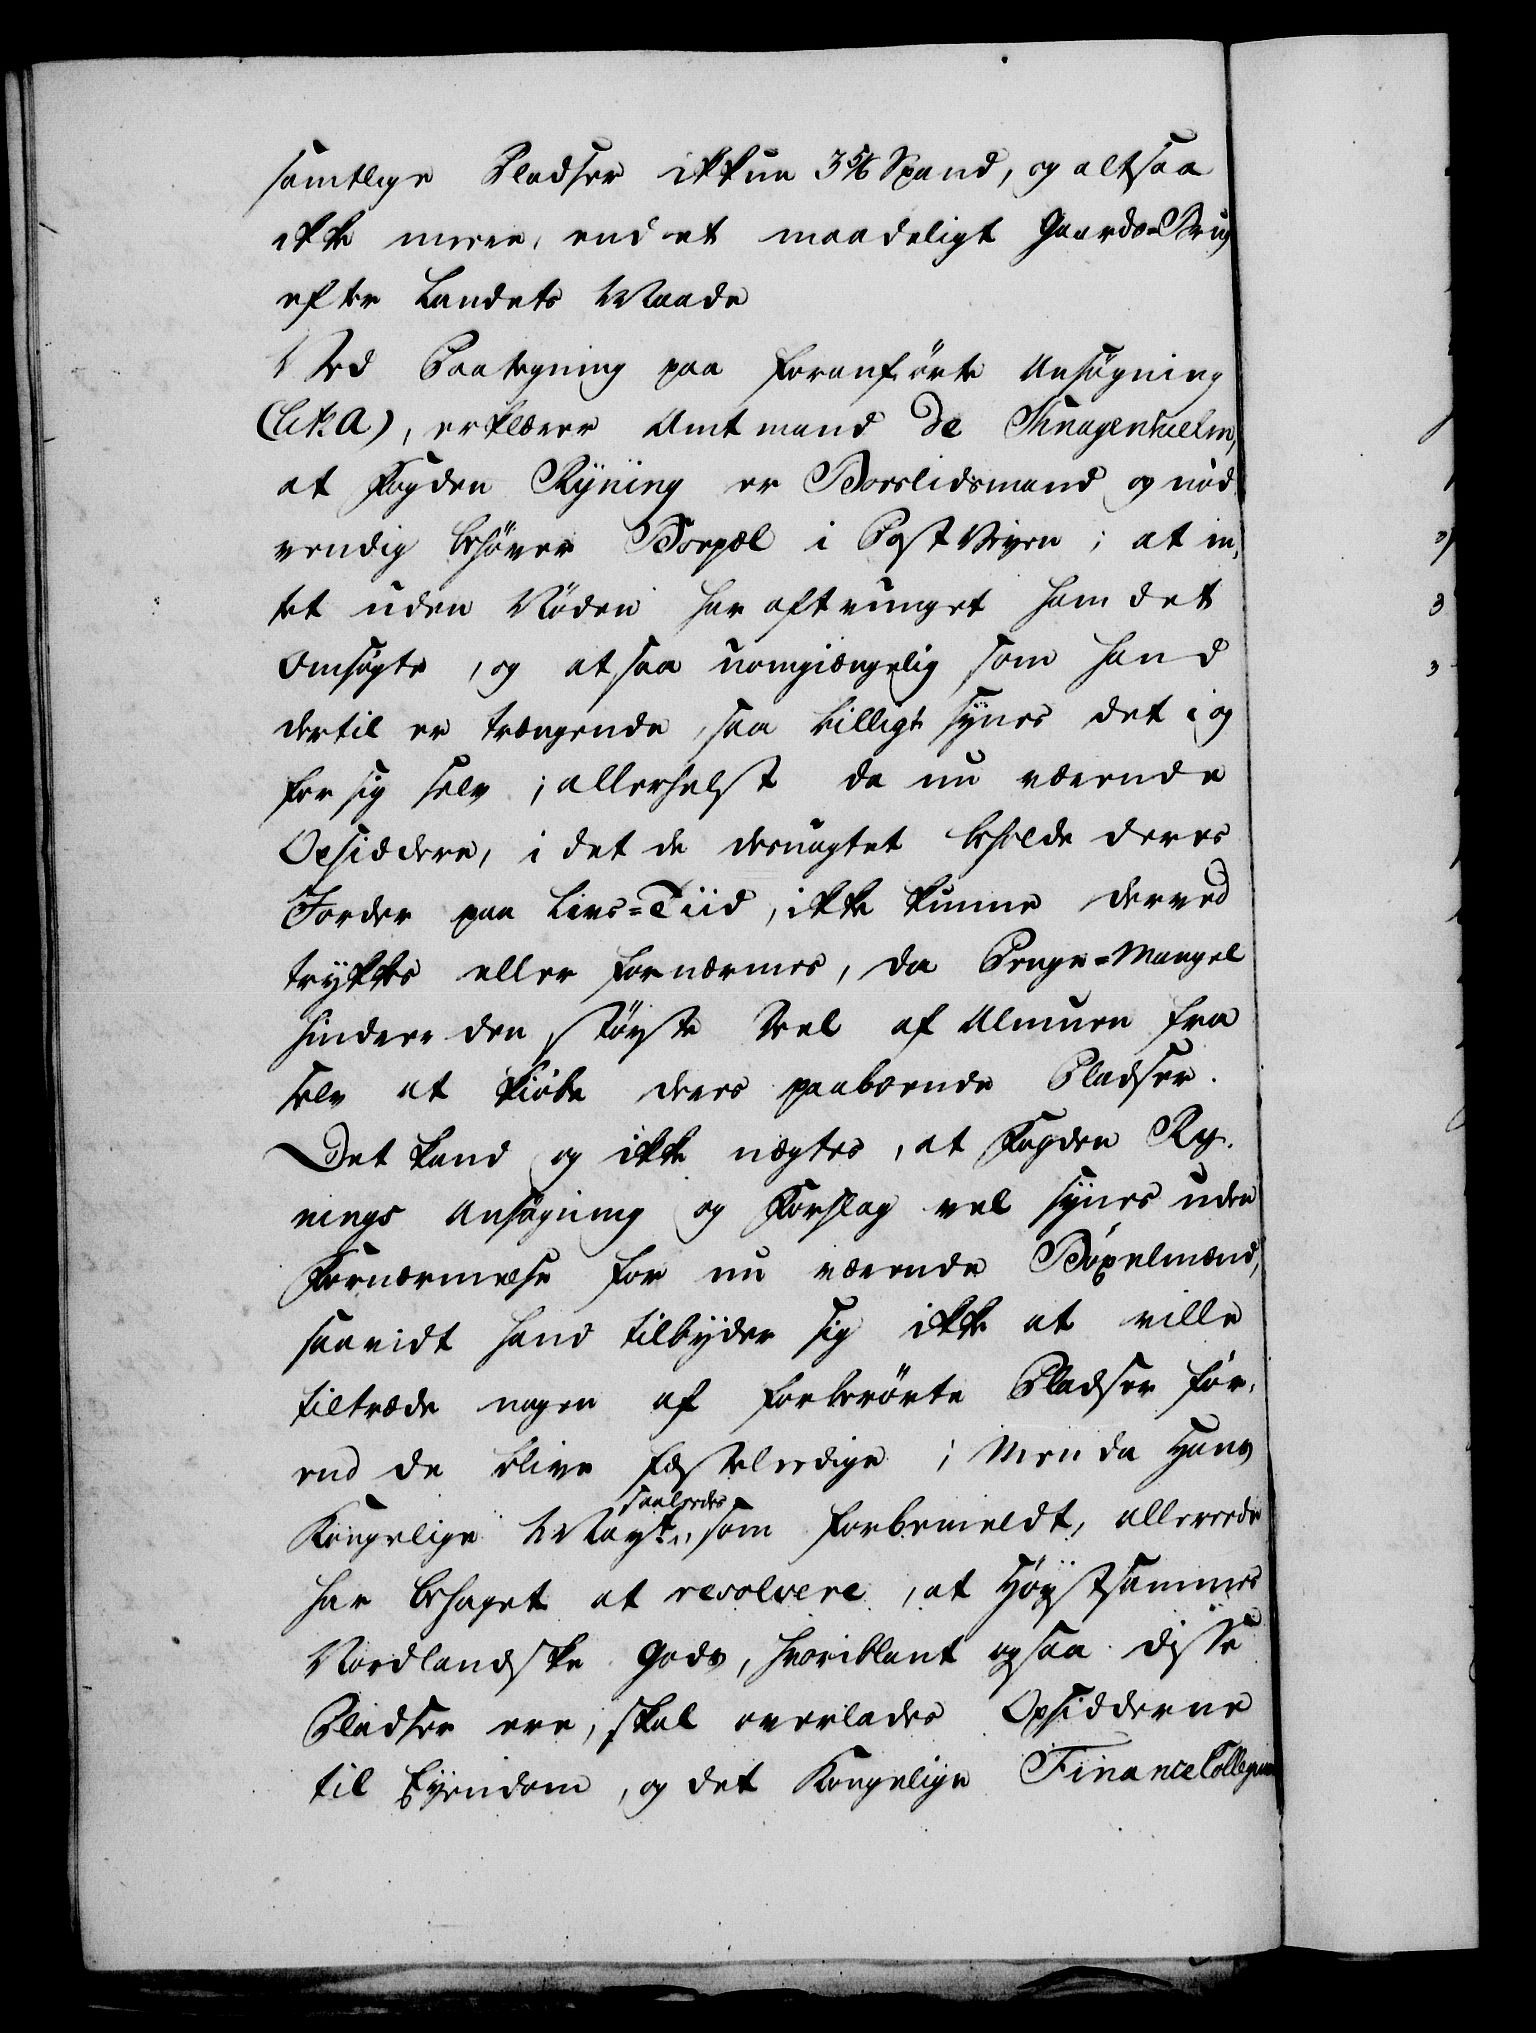 samtlige Pladser ikkun 3 5/6 Spand, og altsaa
ikke meere, end et maadeligt Gaards-Brug
efter Landets Maade
Ved Paategning paa foranførte Ansøgning
(Lit. A), erklærer Amtmand de Knagenhielm,
at Fogden Ryning er Boeslidsmand og nød
vendig behøver Boepæl i Post Veyen; at in,
tet uden Nøden har aftvunget ham det
Omsøgte, og at saa uomgiængelig som hand
dertil er trængende, saa billigt synes det i og
for sig selv; allerhelst da nu værende
Opsiddere, i det de desuagtet beholde deres
Jorder paa Livs=Tiid, ikke kunne derved
trykkes eller fornærmes, da Penge=Mangel
hindrer den største Deel af Almuen fra
selv at kiøbe deres paaboende Pladser.
Det kand og ikke nægtes, at Fogden Ry-
nings Ansøgning og Forslag vel synes uden
Fornærmelse for nu værende Bøxelmænd,
saavidt hand tilbyder sig ikke at ville
tiltræde nogen af forberørte Pladser før,
end de blive fæsteledige; Men da Hans
Kongelige Mayt. saaledes som forbemeldt, allereede
har behaget at resolvere, at Høystsammes
Nordlandske Gods, hvoriblant ogsaa disse
Pladser ere, skal overlades Opsidderne
til Eyendom, og det Kongelige Finance Collegium